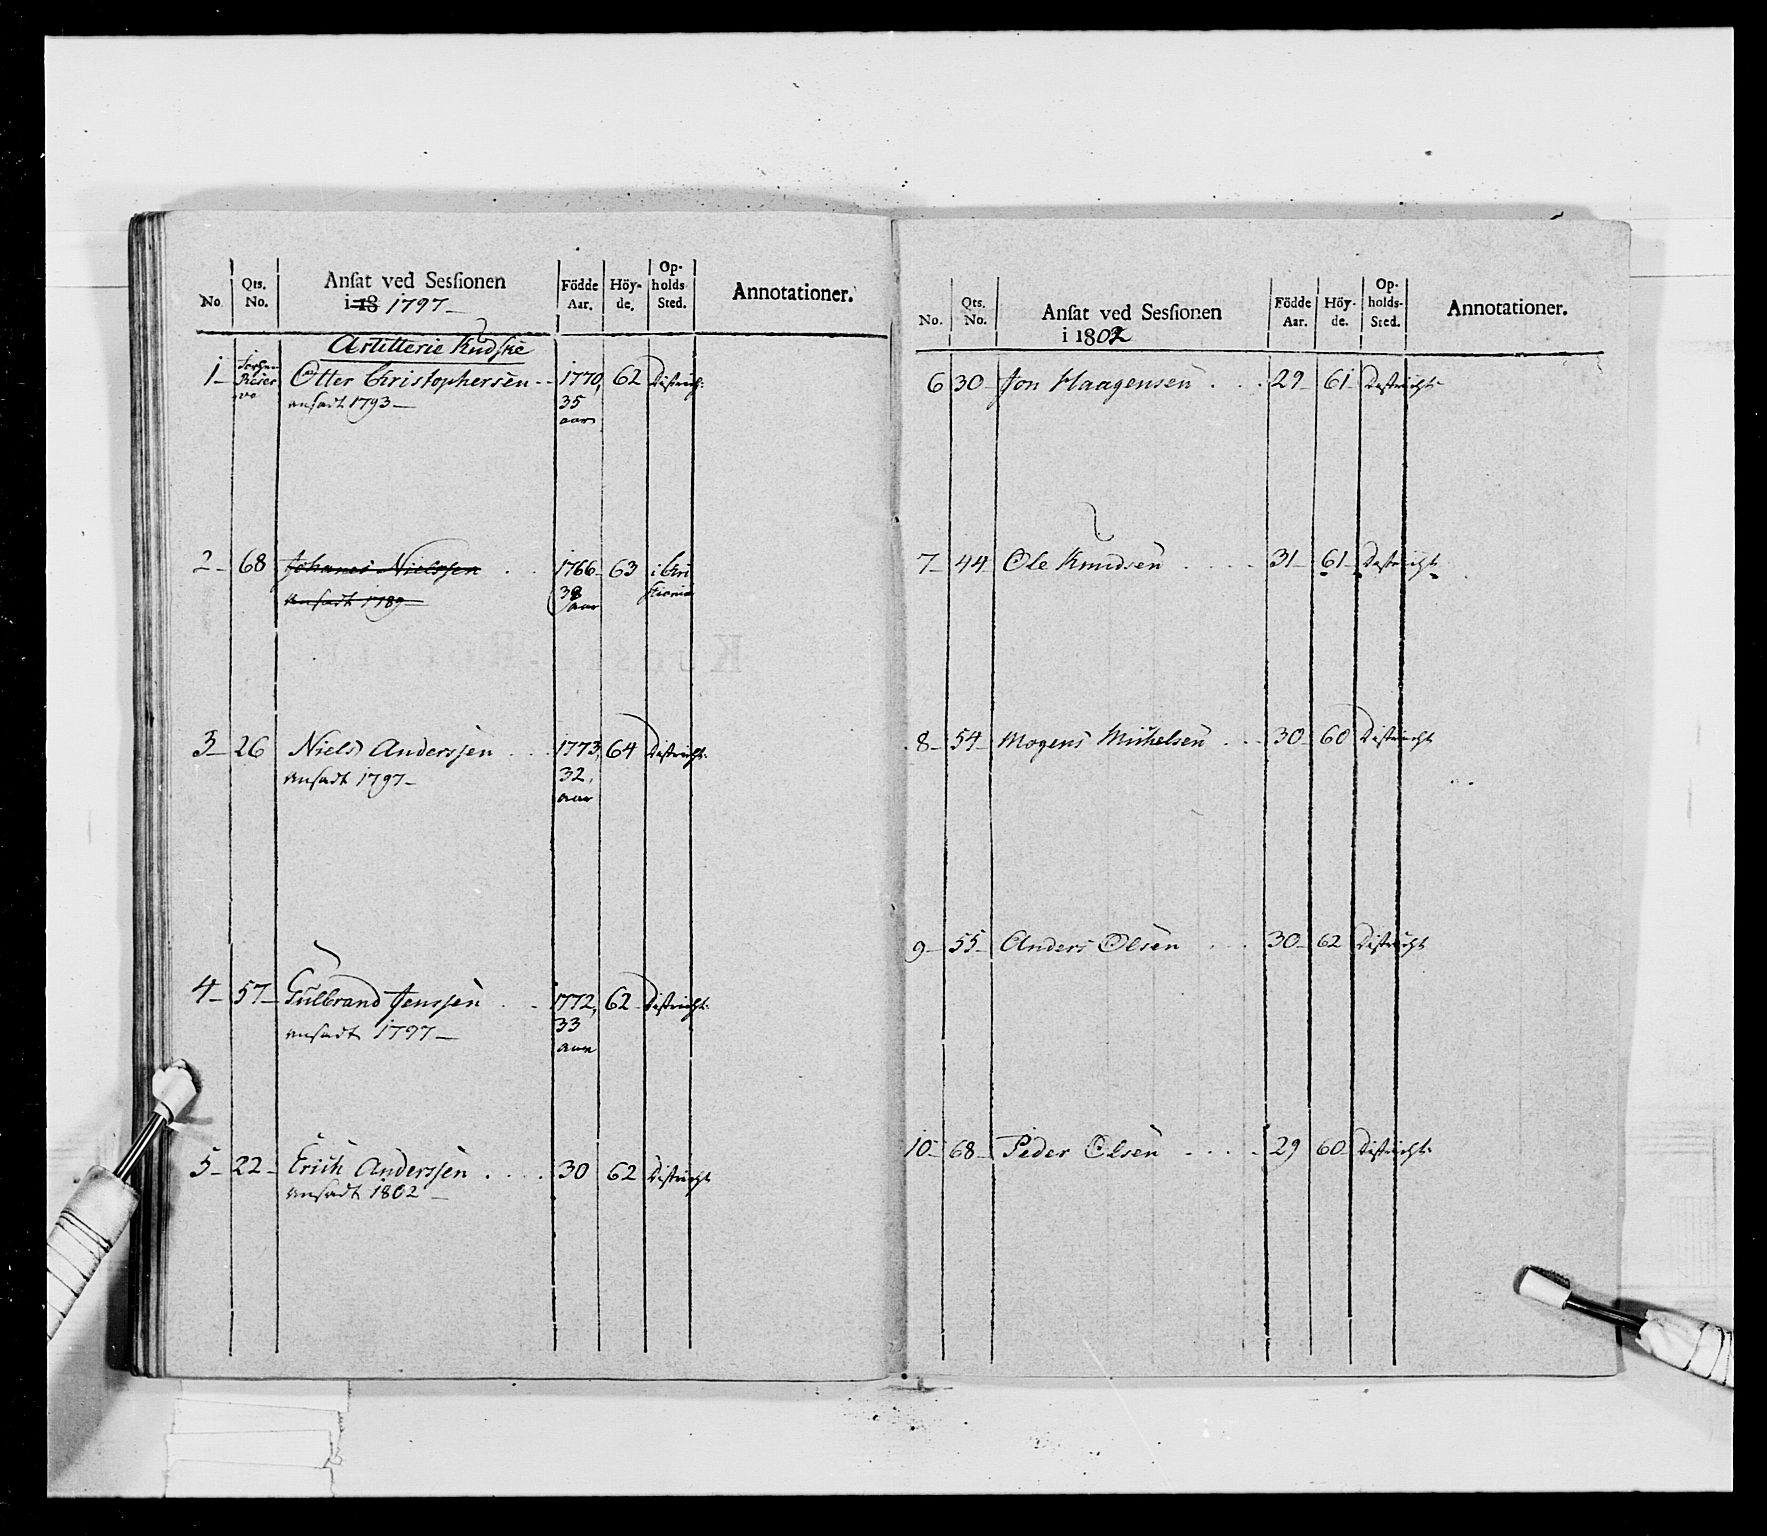 No. Qts. No. Ansat ved Sessionen i 18 1797 Födde Aar. Höyde. Opholds Sted. Annotationer.
Artillerie Kudske
1 Otter Christophersen 1770, 62 District
ansadt 1793 35
aar
2 68 Johanes Nielssen 1766 63 i Chri
ansadt 1789 38 stiania
aar
3 26 Niels Anderssen 1773, 64 District
ansadt 1797 32,
aar
4 57 Gulbrand Jenssen 1772, 62 District
ansadt 1797 33
aar
5 22 Erich Anderssen 30 62 District
ansadt 1802
No. Qts. No. Ansat ved Sessionen i 1802 Födde Aar. Höy-de. Op-holds-Sted. Annotationer.
6 30 Jon Haagensen 29 61 District
7 44 Ole Knudsen 31 61 District
8 54 Mogens Michelsen 30 60 District
9 55 Anders Olsen 30 62 District
10 68 Peder Olsen 29 60 District